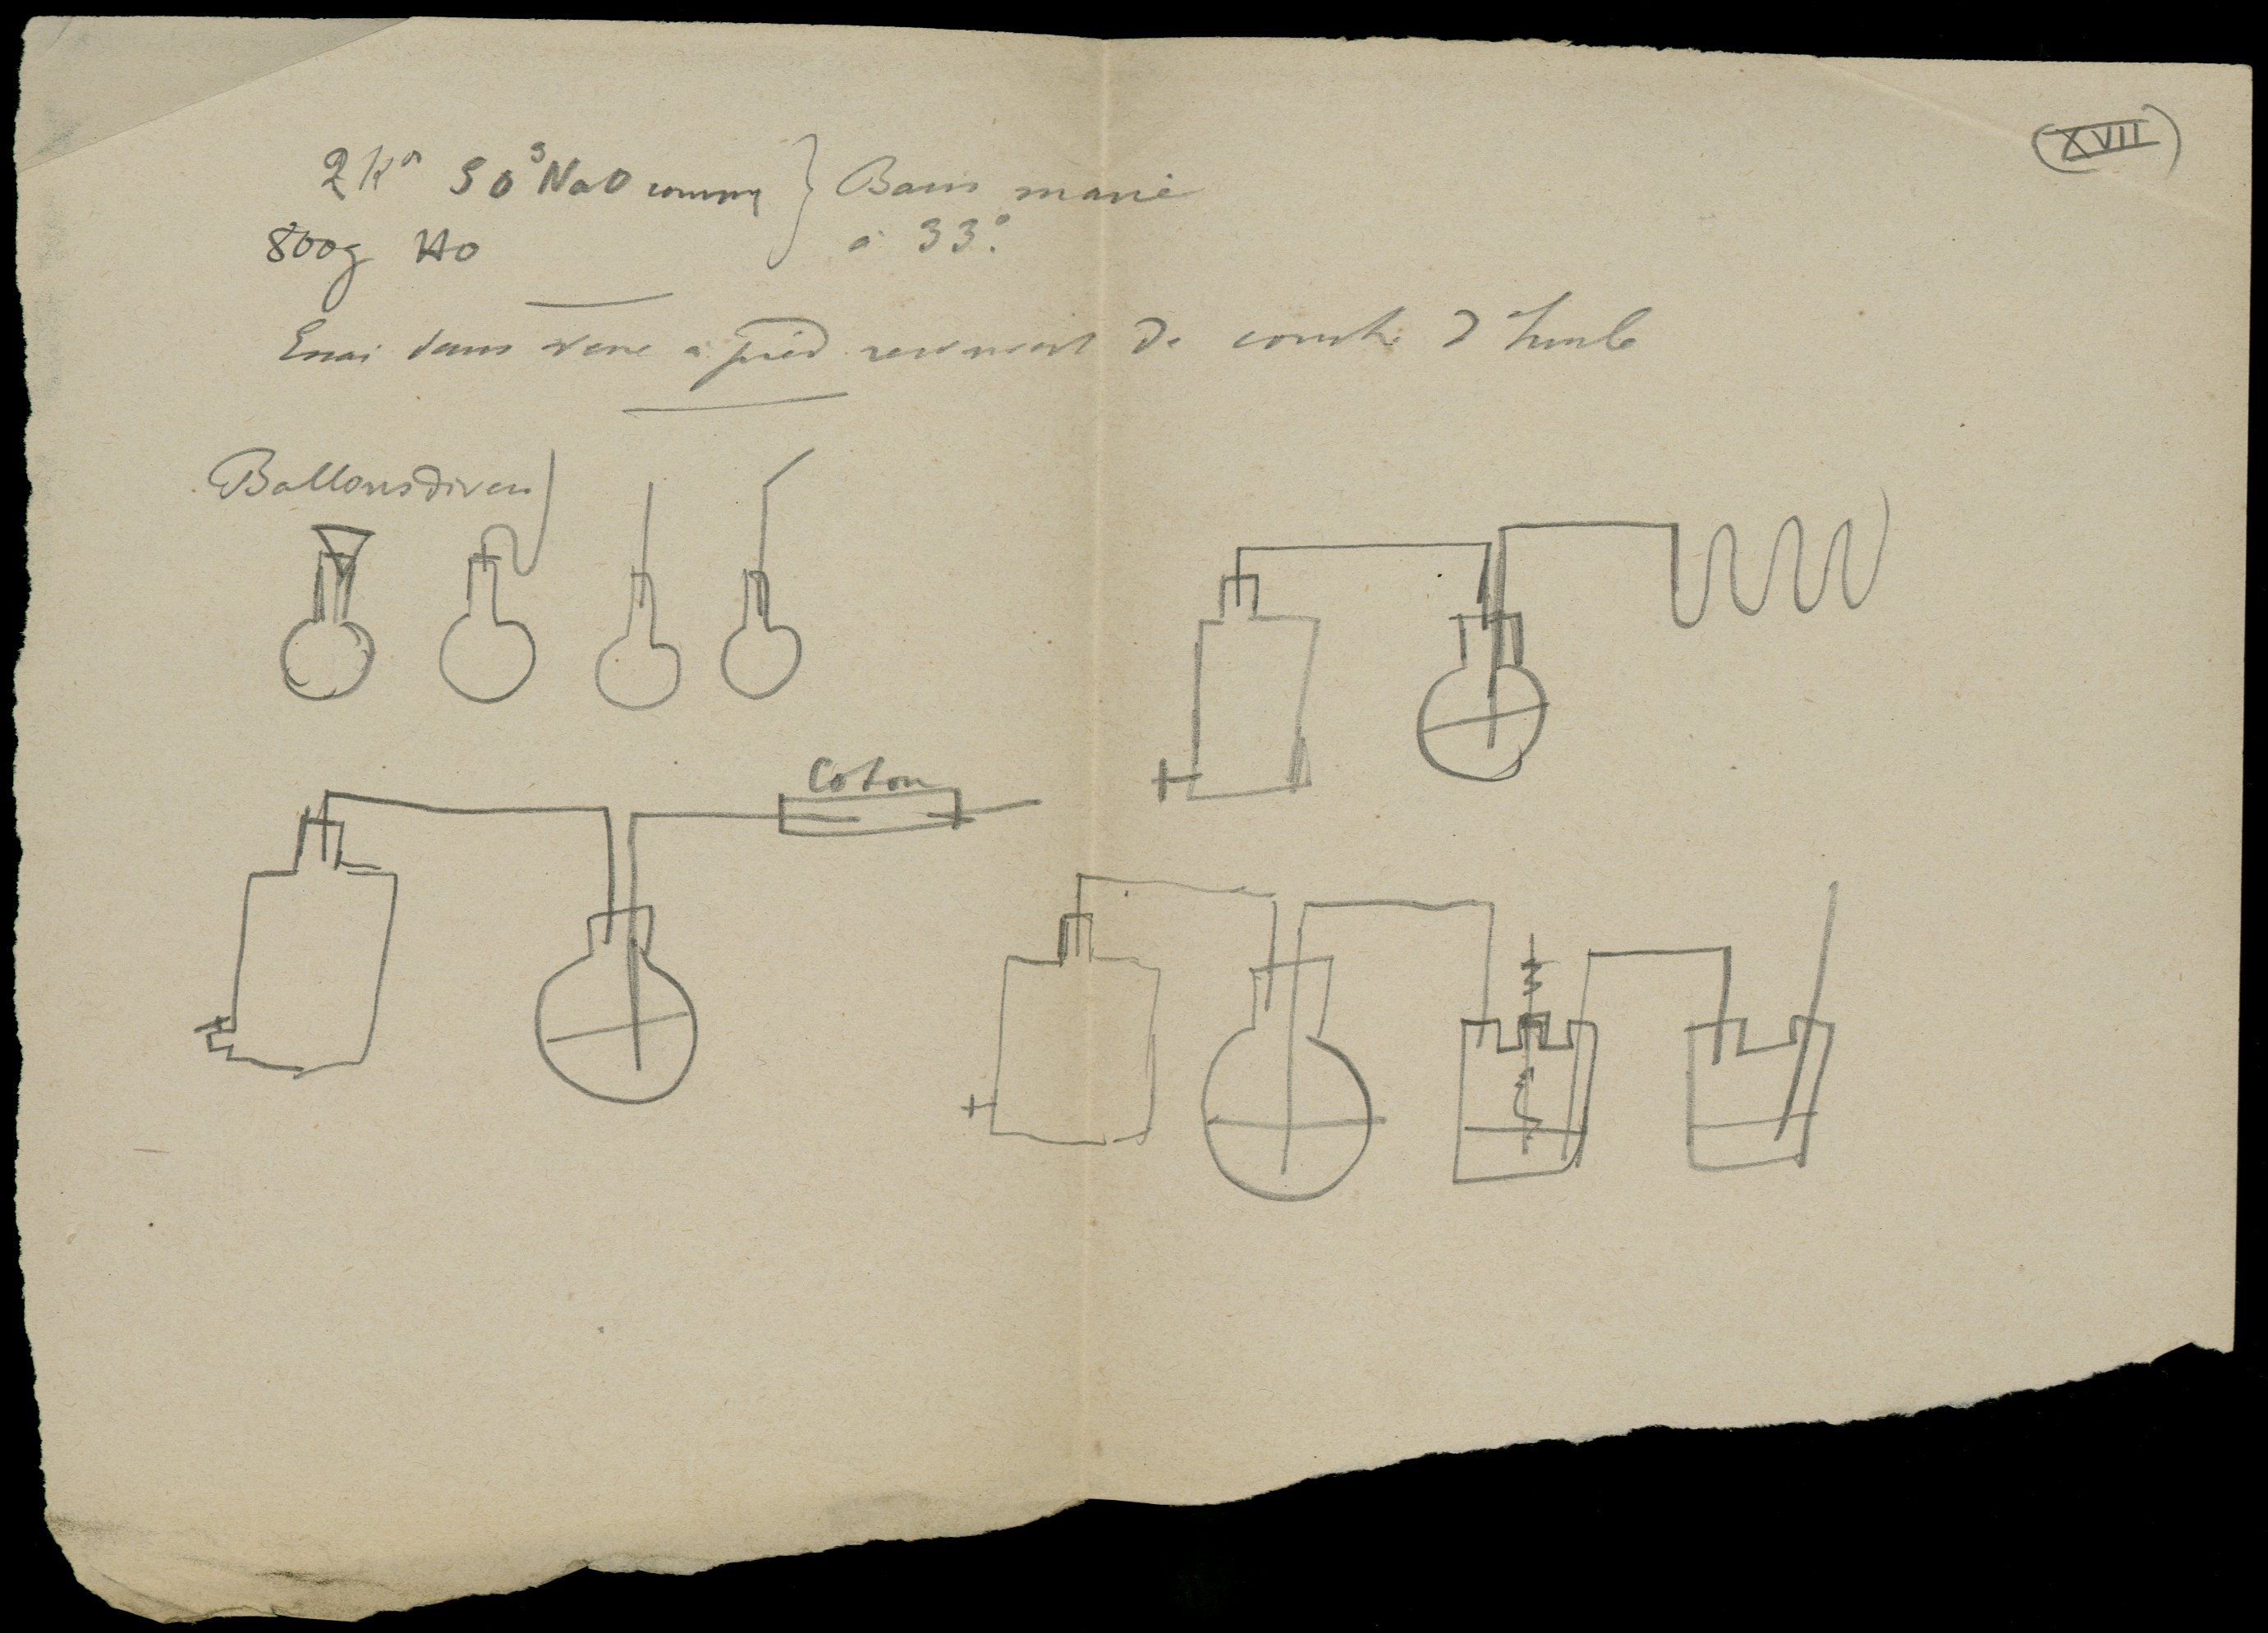 (XVII)
2 K°ˢ SO³NaO comm } Bain marie
800g HO à 33°.
Essai dans verre à pied recouvert de couche d'huile
Ballons divers
Coton